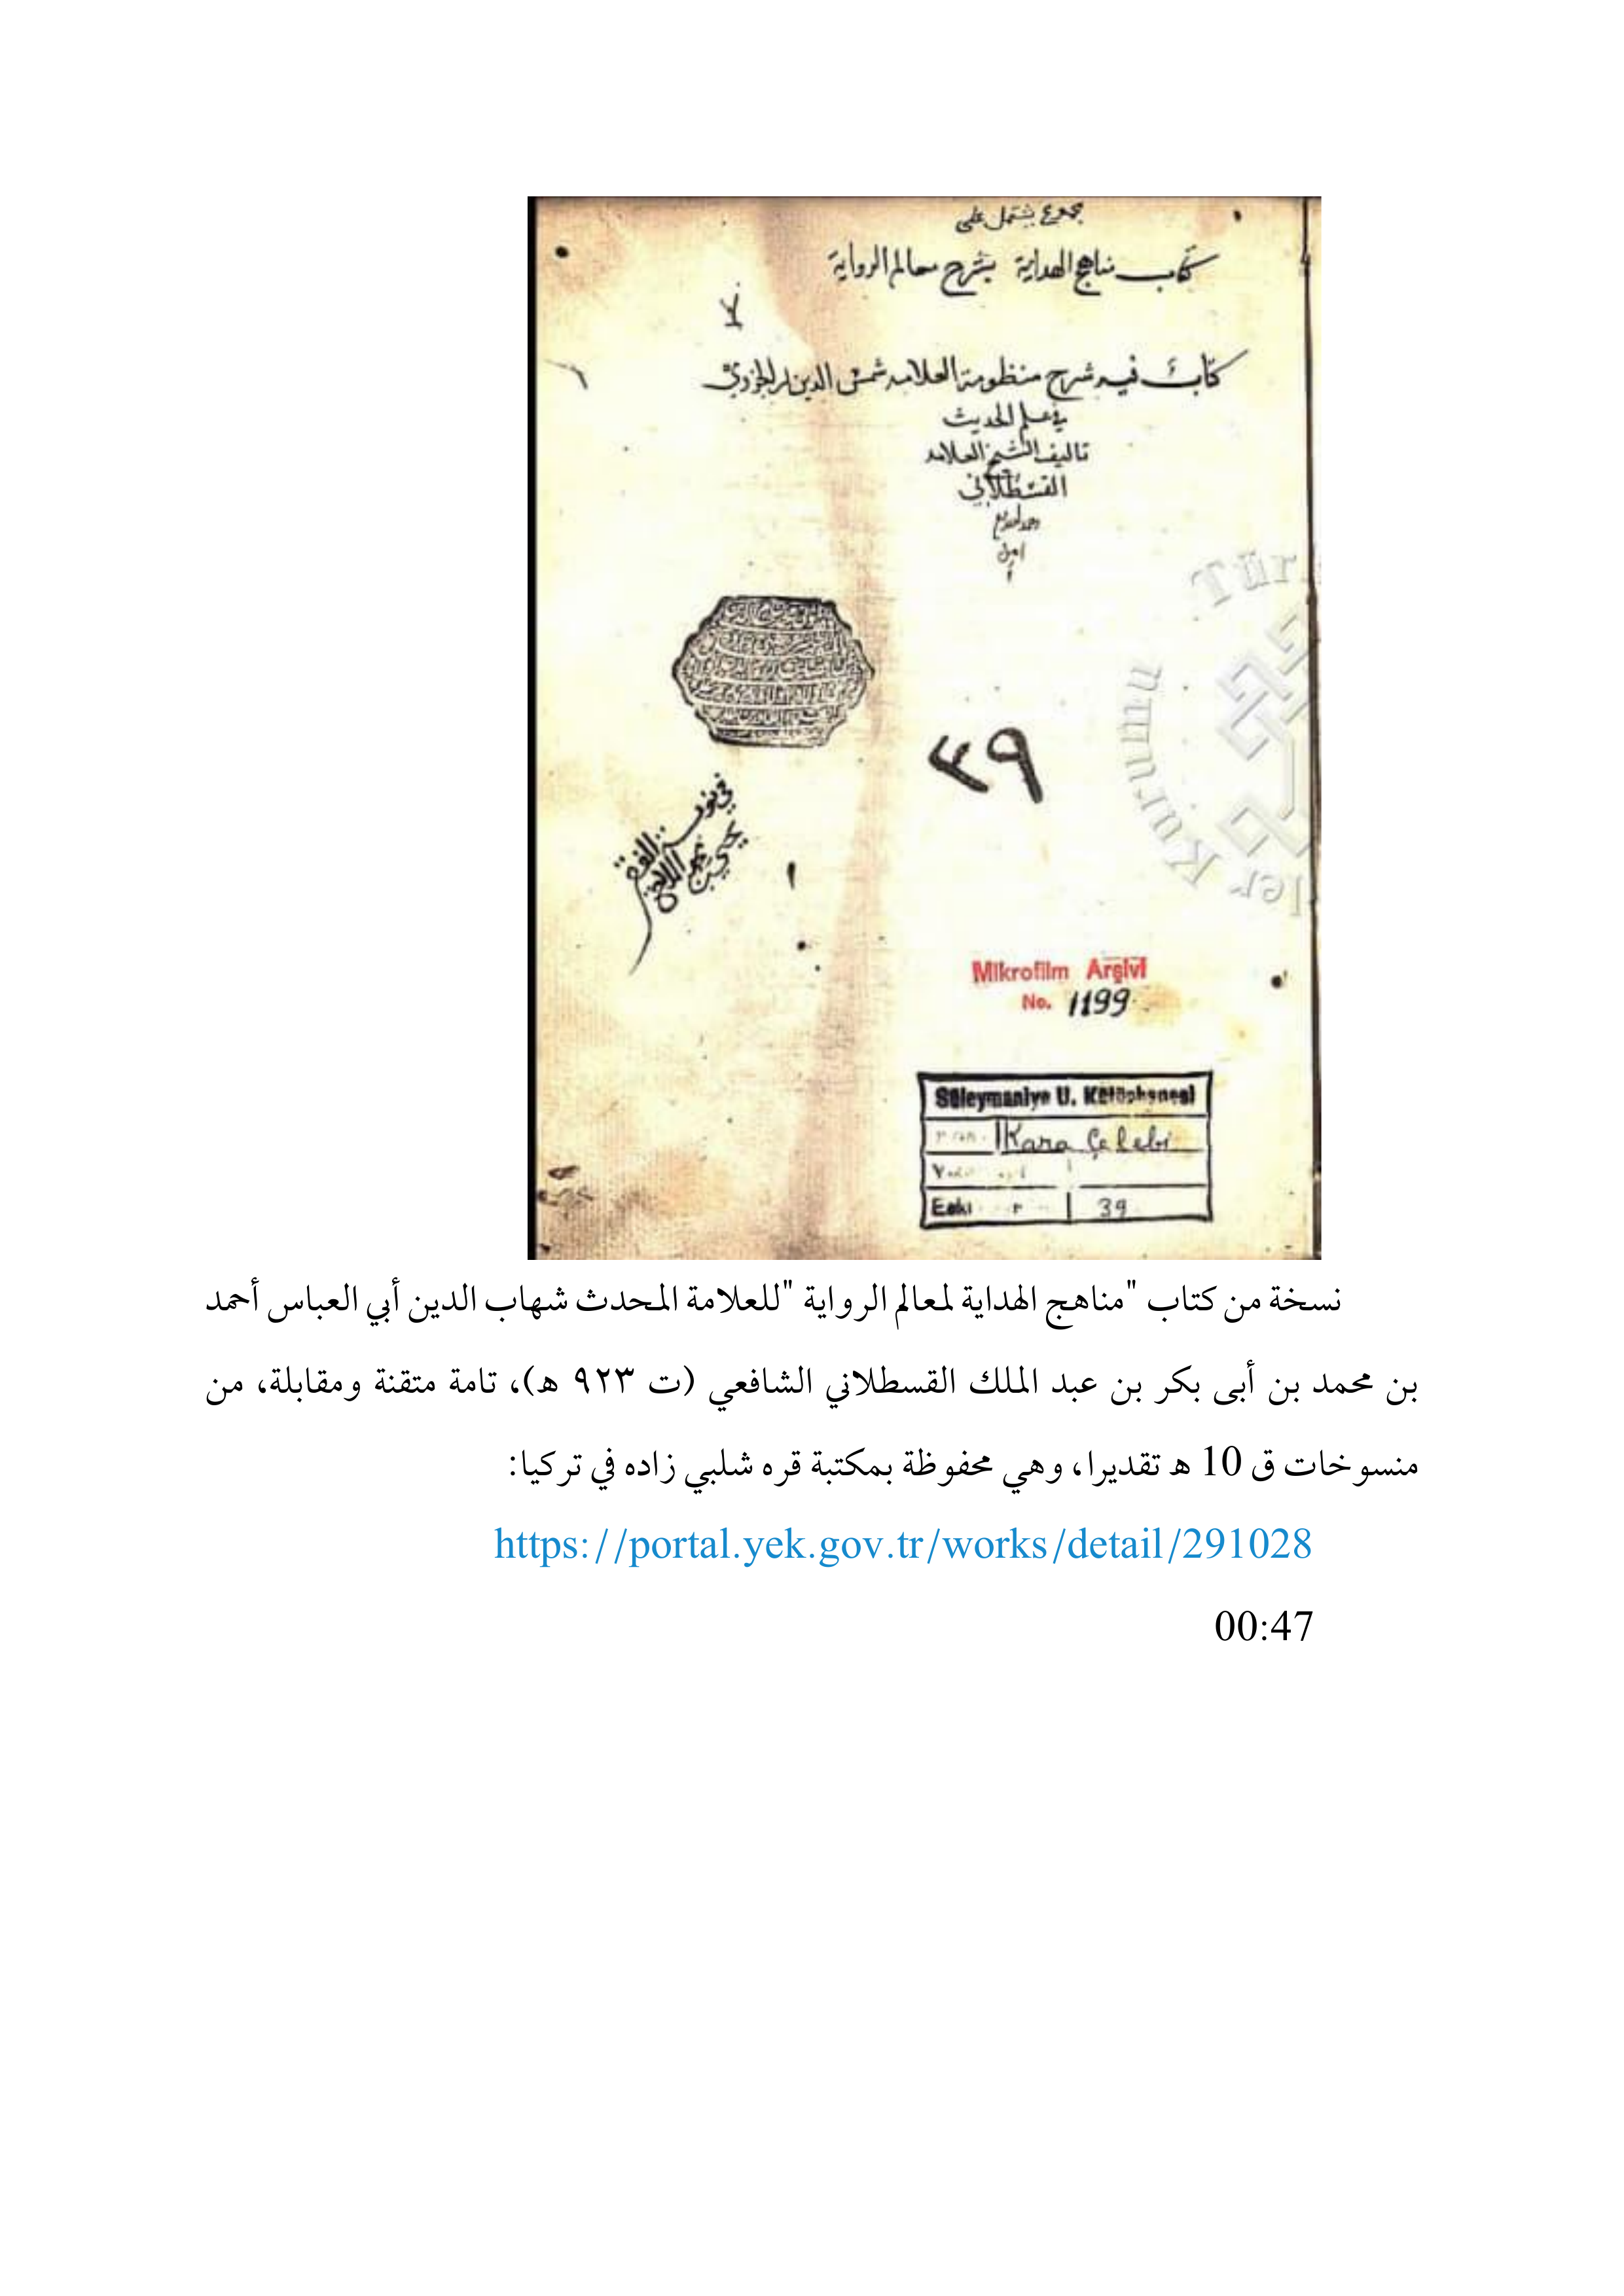 مجموع يشتمل على
كتاب مناهج الهداية بشرح معالم الرواية
كتاب فيه شرح منظومة العلامه شمس الدين ابن الجزري
في علم الحديث
تاليف الشيخ العلامه
القسطلاني
امين
Tür
ler Kurumu
٣٩
يحيى
Mikrofilm Arşivi
No. 1199
Süleymaniye U. Kütüphanesi
Kara Çelebi
Eski 39
نسخة من كتاب "مناهج الهداية لمعالم الرواية "للعلامة المحدث شهاب الدين أبي العباس أحمد
بن محمد بن أبى بكر بن عبد الملك القسطلاني الشافعي (ت ٩٢٣ ه)، تامة متقنة ومقابلة، من
منسوخات ق 10 ه تقديرا، وهي محفوظة بمكتبة قره شلبي زاده في تركيا:
https://portal.yek.gov.tr/works/detail/291028
00:47